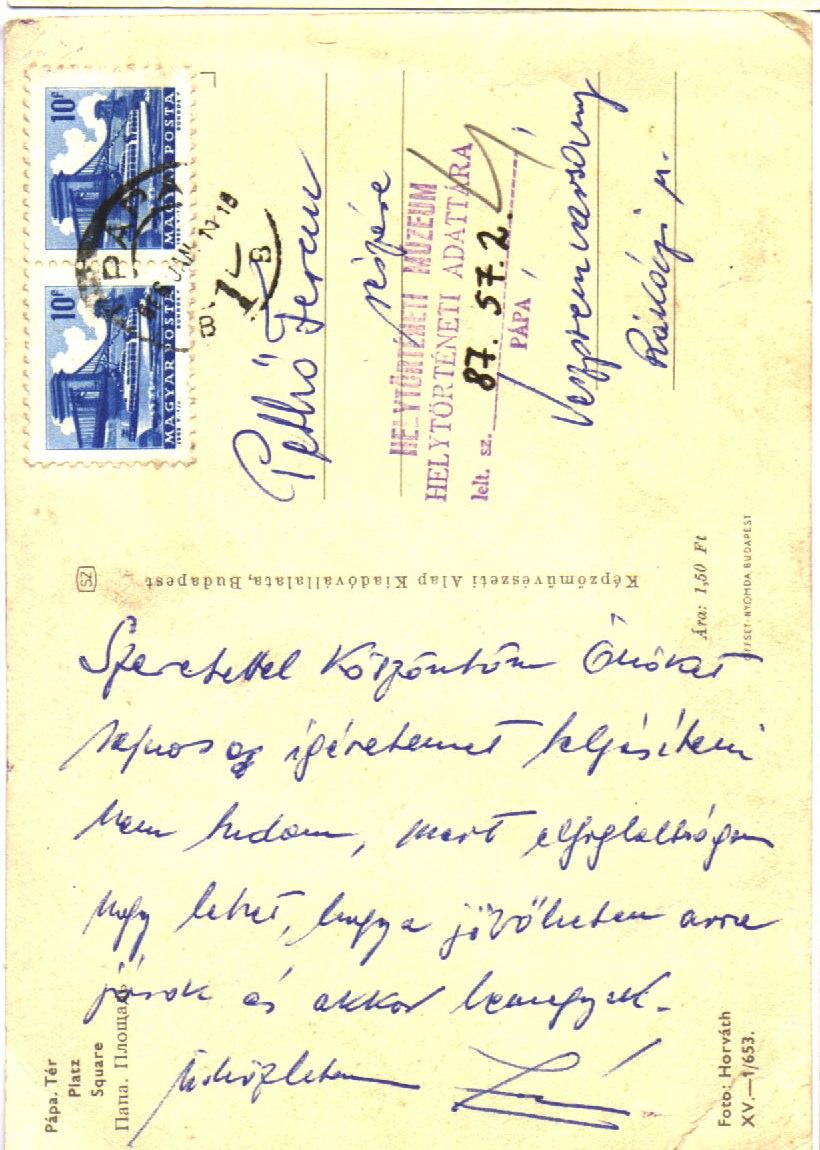 Szeretettel köszöntöm Önöket
sajnos az igéretemet teljesíteni
nem tudom, mert elfoglaltságom
ugy lehet, hogy a jövőheten arra
járok és akkor bemegyek.
Üdvözlettem
Pethő Ferenc
részére
Veszprémvarsány
Rákóczi u.
HELYTÖRTÉNETI MUZEUM
HELYTÖRTÉNETI ADATTÁRA
lelt. sz. 87. 57. 2.
PÁPA
10f
MAGYAR POSTA
10f
MAGYAR POSTA
PÁPA
JAN. 11-18
1
B B
Képzőművészeti Alap Kiadóvállalata, Budapest
SZ
Ára: 1,50 Ft
OFFSET-NYOMDA BUDAPEST
Pápa. Tér
Platz
Square
Папа. Площадь
Foto: Horváth
XV.—1/653.